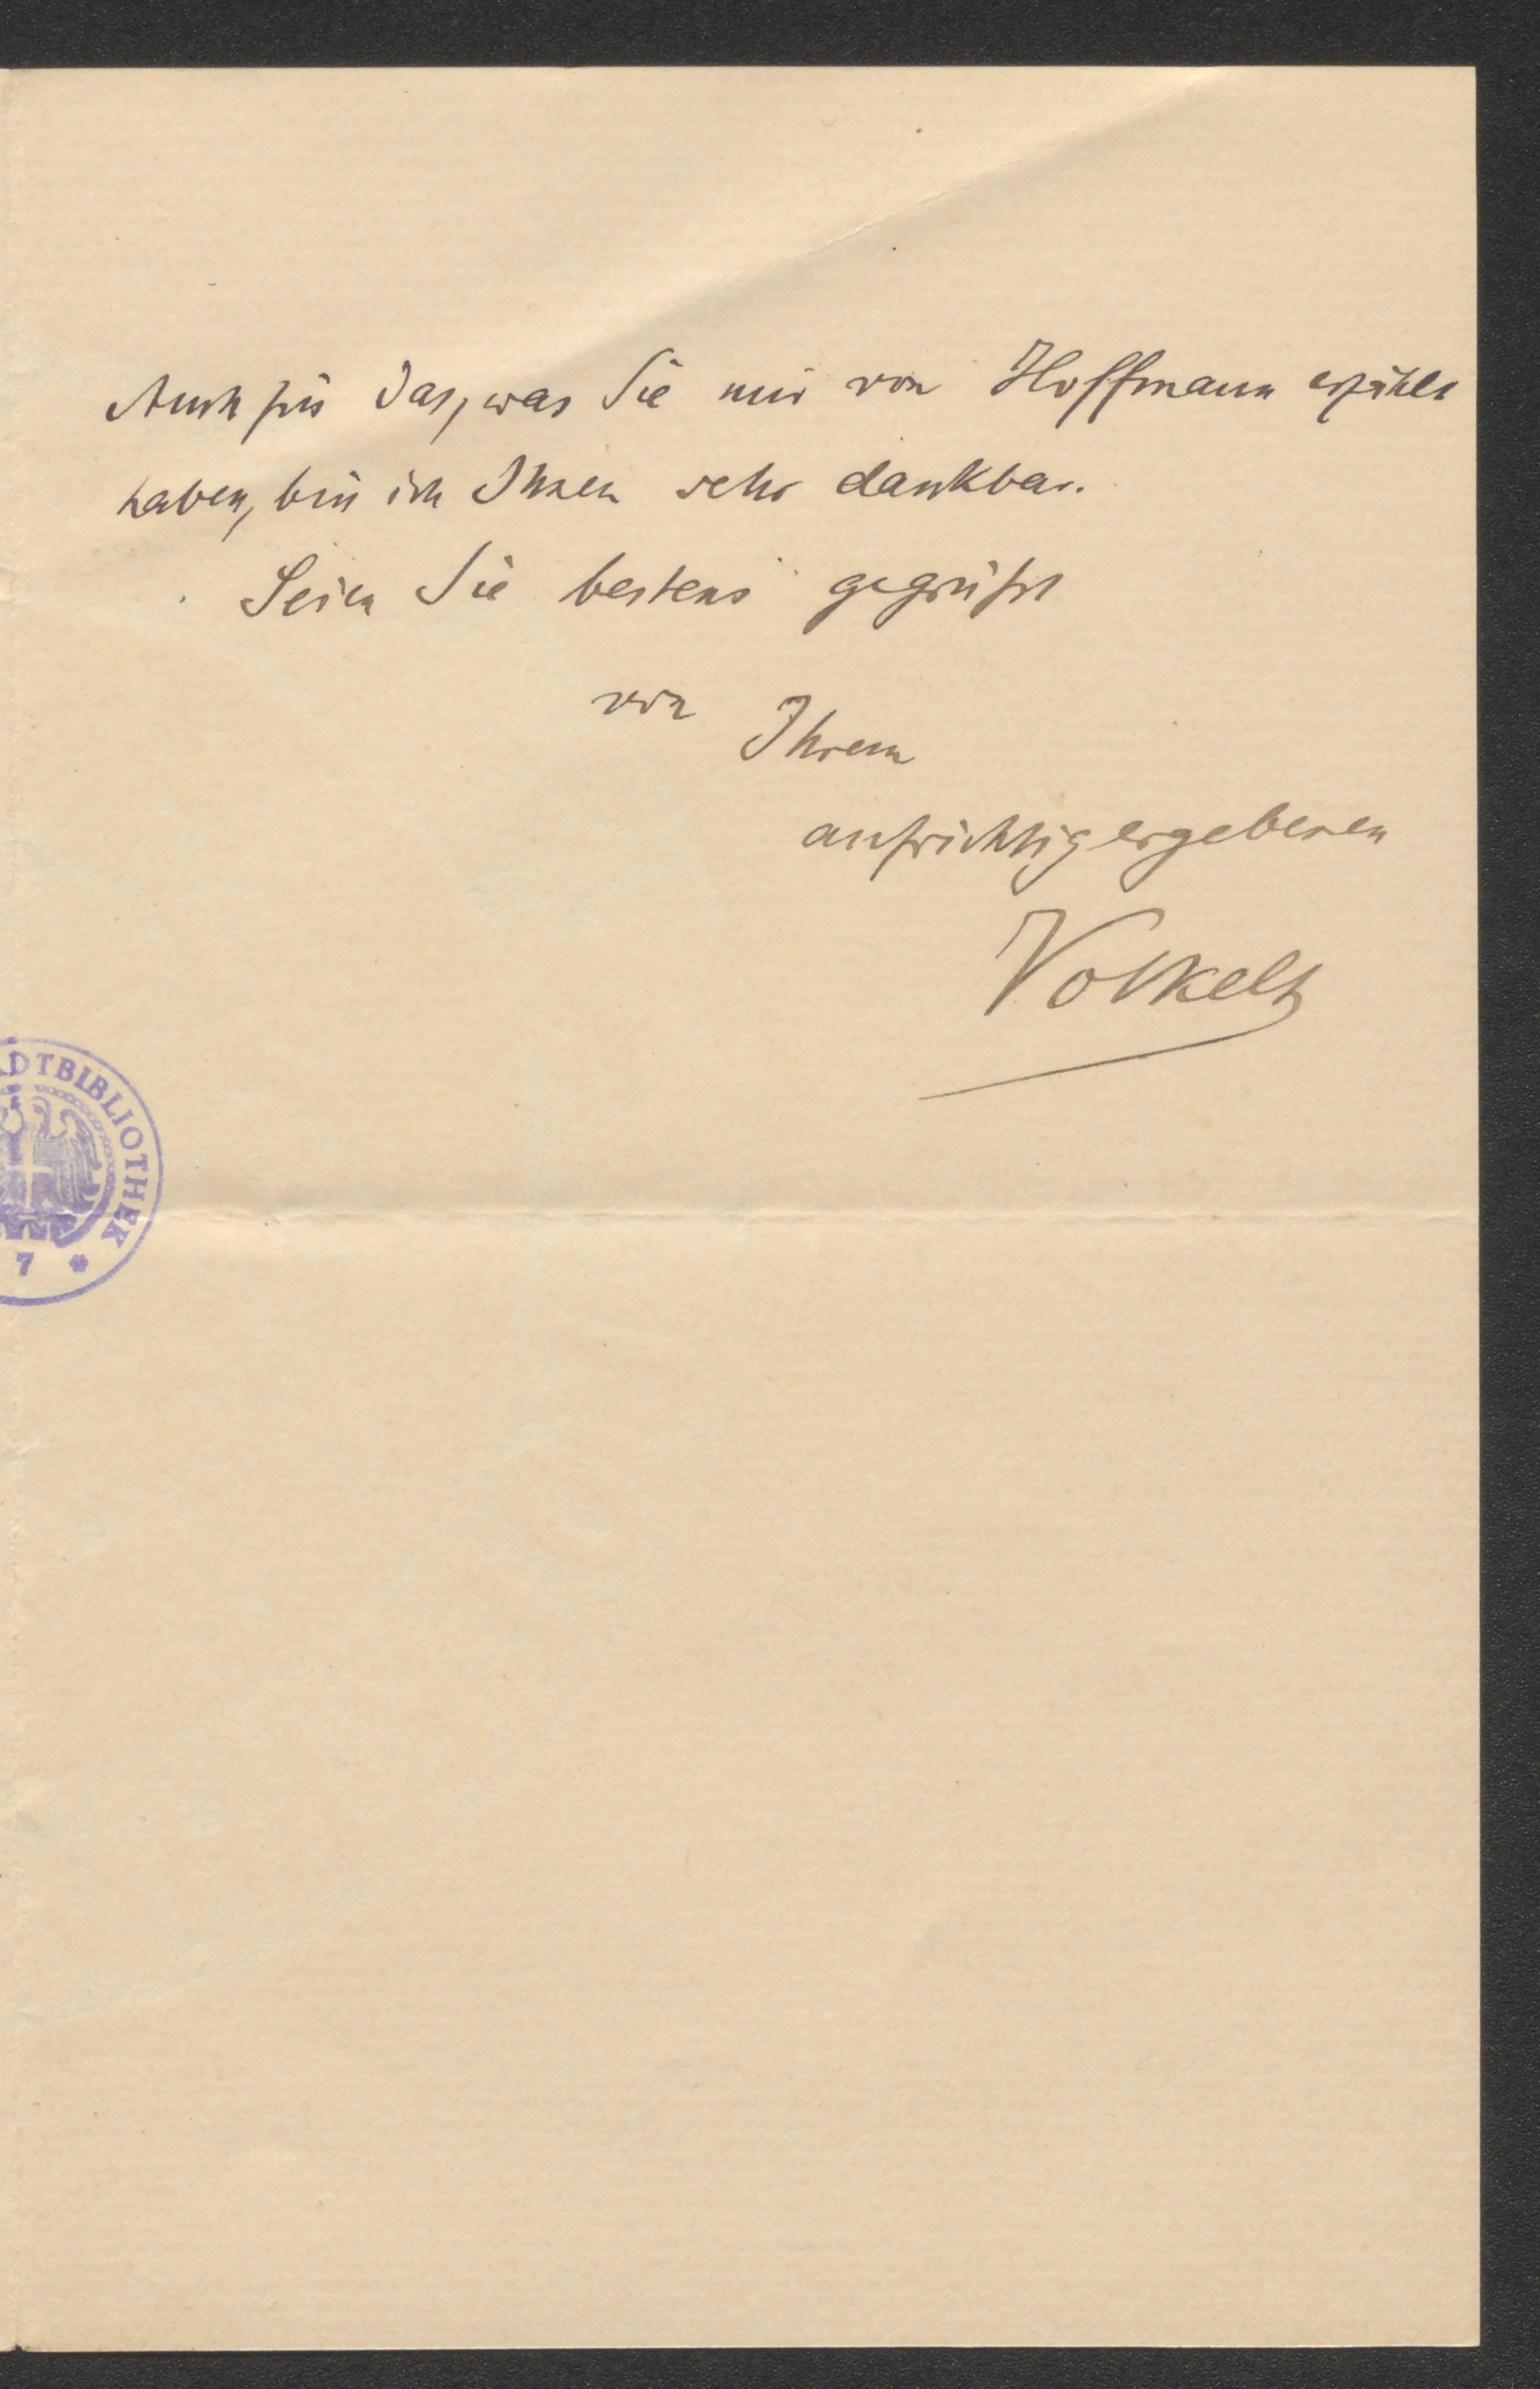 Auch für das, was Sie mir von Hoffmann erzählt
haben, bin ich Ihnen sehr dankbar.
Seien Sie bestens gegrüßt
von Ihrem
aufrichtig ergebenen
Volkelt
ADTBIBLIOTHEK
7 *